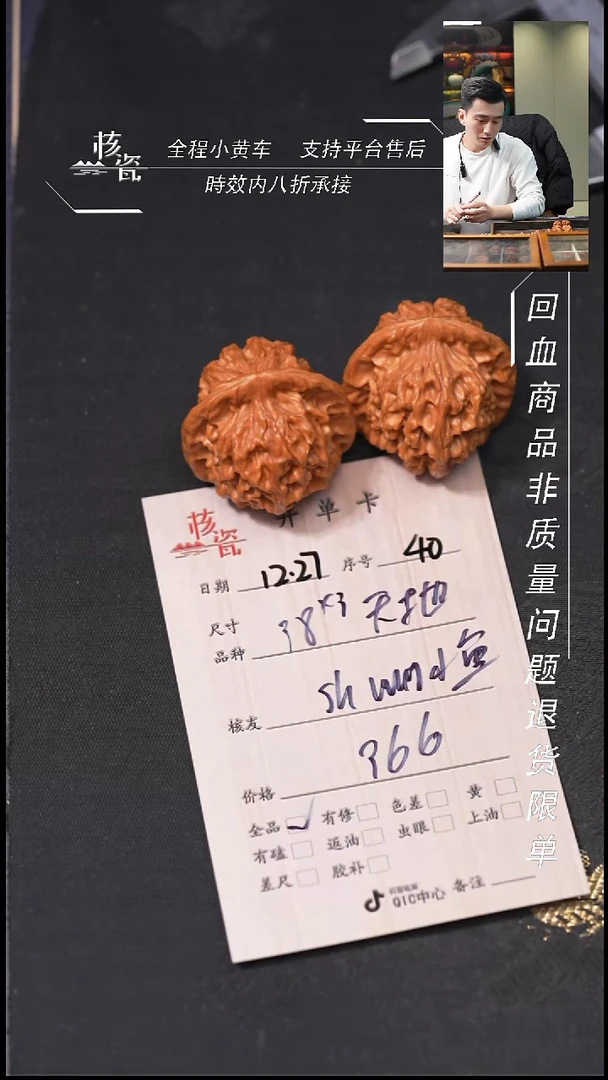 核瓷
全程小黄车 支持平台售后
時效内八折承接
回血商品非质量问题退货限单
开单卡
核瓷
日期 12.27 序号 40
尺寸
品种 38
核友
价格 966
全品 有修 色差 黄
有磕 返油 虫眼 上油
差尺 胶补
QIC中心 备注